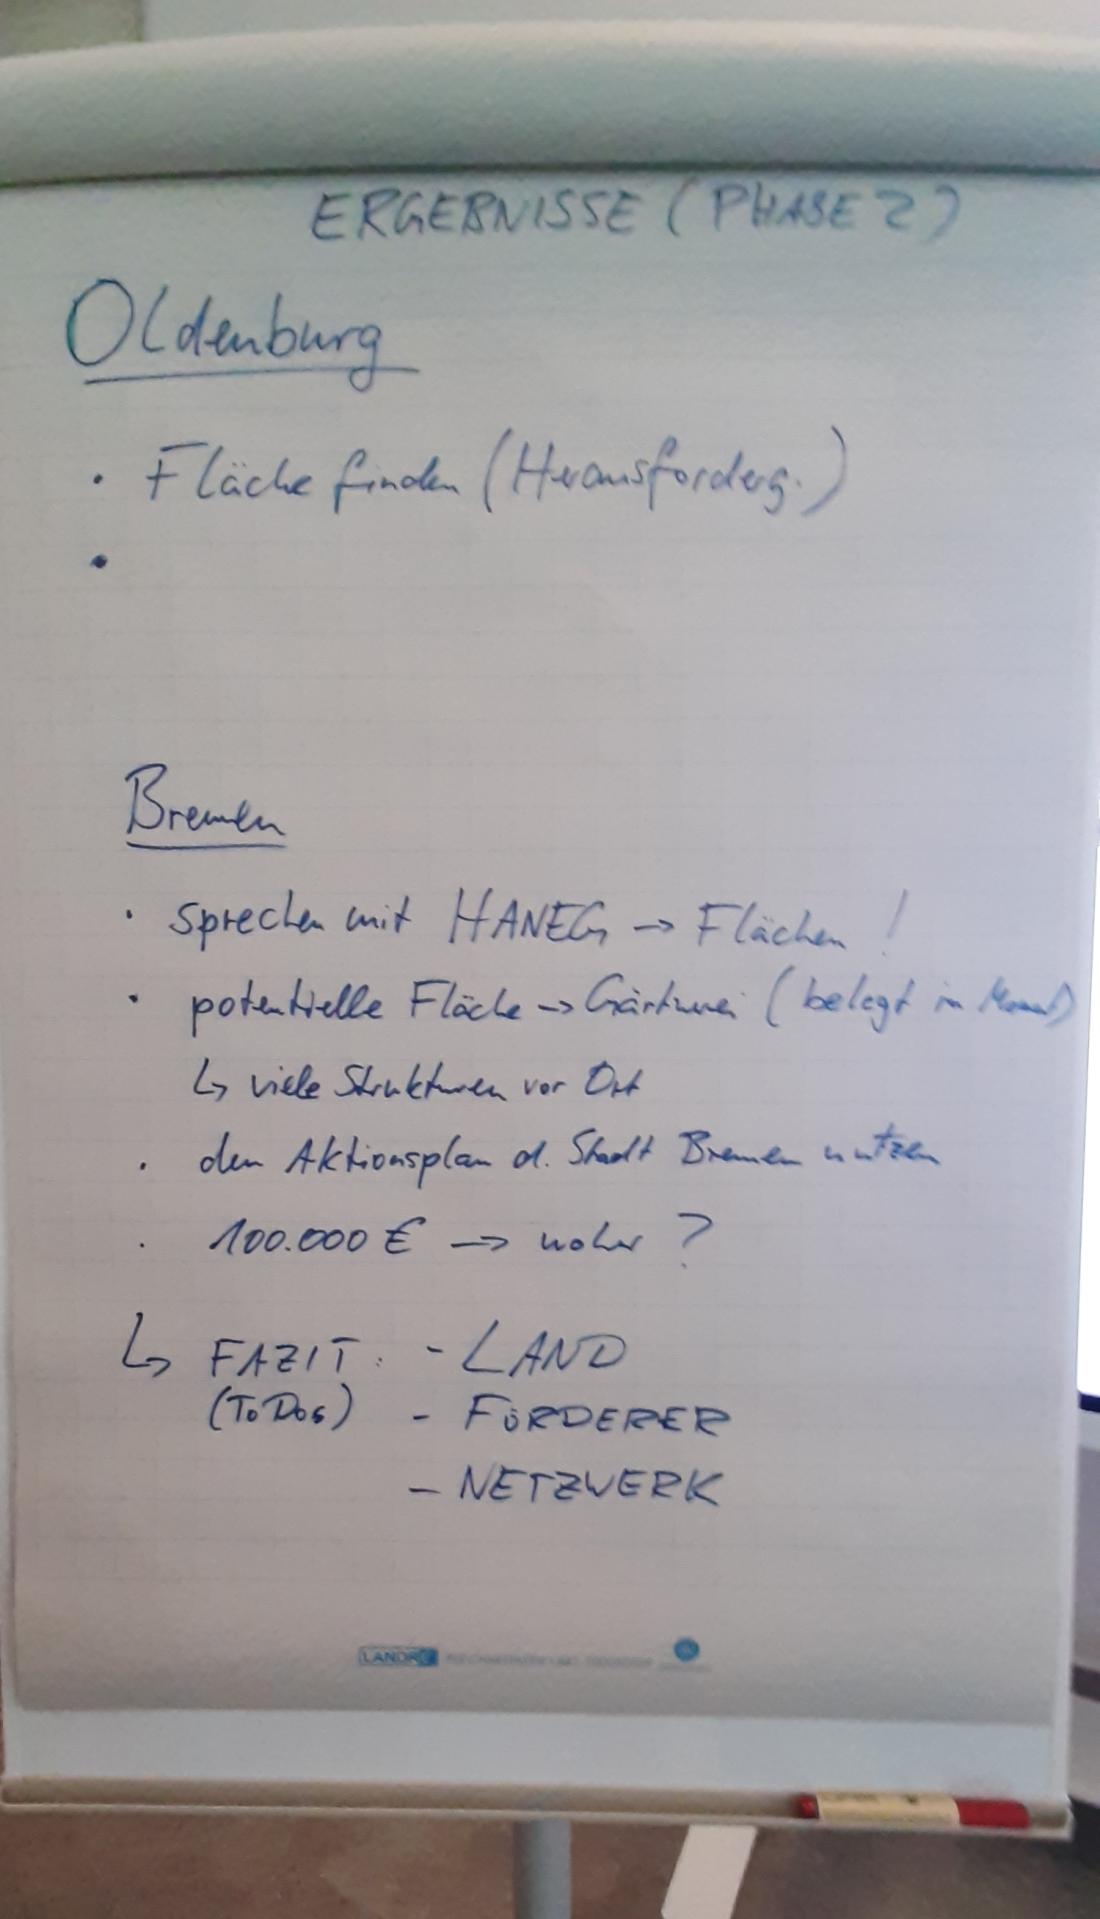 ERGEBNISSE (PHASE 2)
Oldenburg
• Fläche finden (Herausforderg.)
•
Bremen
• sprechen mit HANEG → Flächen !
• potentielle Fläche → Gärtnerei (belegt im
↳ viele Strukturen vor Ort
• den Aktionsplan d. Stadt Bremen nutzen
• 100.000 € → woher ?
↳ FAZIT: - LAND
(ToDos) - FÖRDERER
- NETZWERK